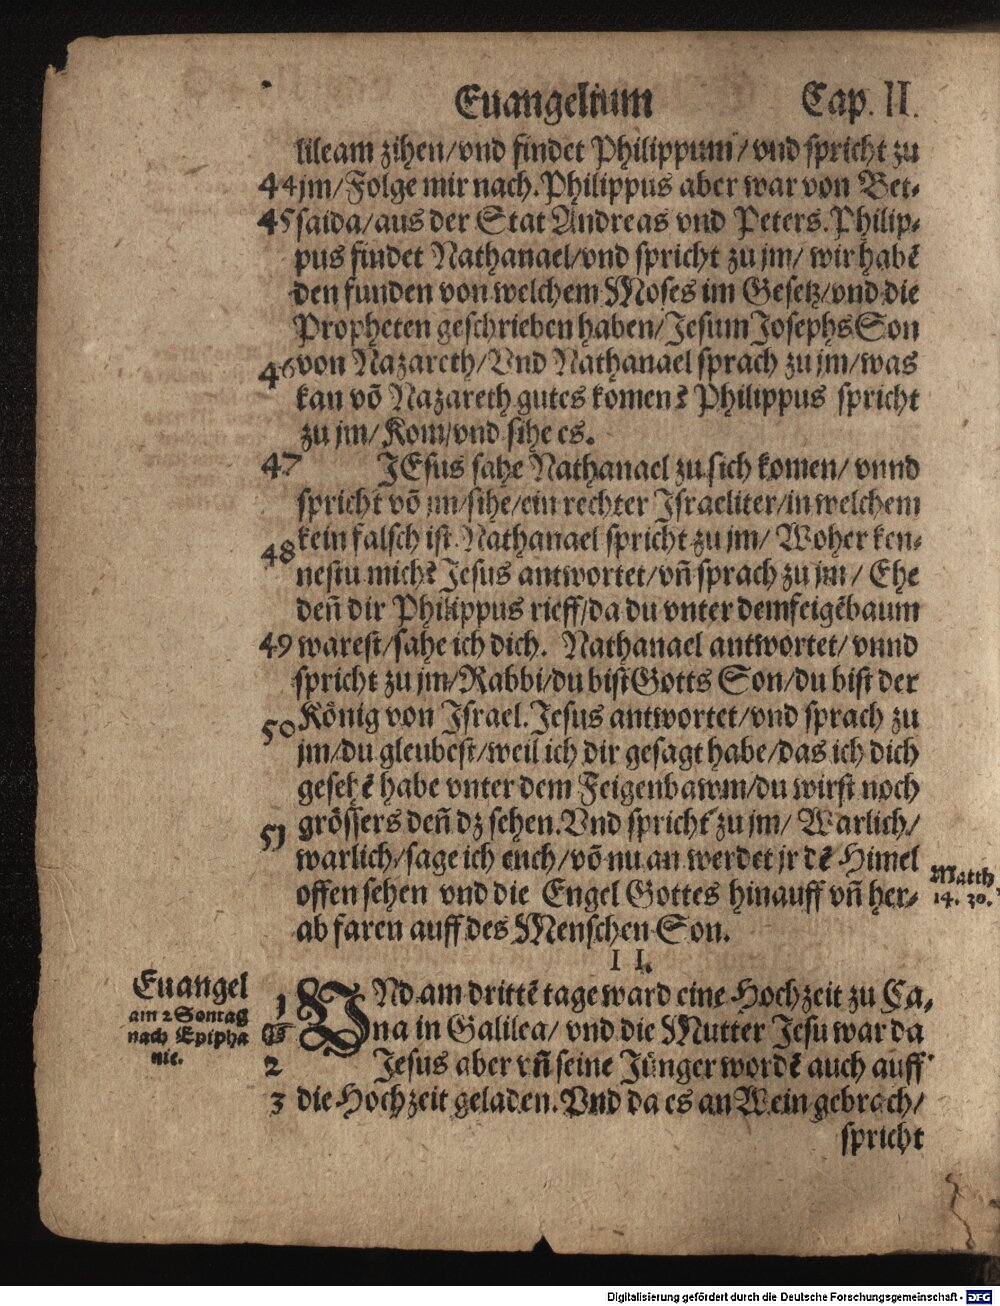 Euangelium Cap. II.
lileam zihen/vnd findet Philippum/vnd spricht zu
44 jm/Folge mir nach. Philippus aber war von Bet-
45 saida/aus der Stat Andreas vnd Peters. Philip-
pus findet Nathanael/vnd spricht zu jm/ wir habẽ
den funden von welchem Moses im Gesetz/vnd die
Propheten geschrieben haben/Jesum Josephs Son
46 von Nazareth/Vnd Nathanael sprach zu jm/was
kan võ Nazareth gutes komen? Philippus spricht
zu jm/ Kom/vnd sihe es.
47 JEsus sahe Nathanael zu sich komen/ vnnd
spricht võ jm/sihe/ein rechter Israeliter/in welchem
48 kein falsch ist. Nathanael spricht zu jm/ Woher ken-
nestu mich? Jesus antwortet/vñ sprach zu jm/ Ehe
deñ dir Philippus rieff/da du vnter dem feigẽbaum
49 warest/sahe ich dich. Nathanael antwortet/ vnnd
spricht zu jm/Rabbi/du bist Gotts Son/du bist der
50 König von Israel. Jesus antwortet/vnd sprach zu
jm/du gleubest/weil ich dir gesagt habe/das ich dich
gesehẽ habe vnter dem Feigenbawm/du wirst noch
51 grössers deñ dz sehen. Vnd spricht zu jm/ Warlich/
warlich/sage ich euch/võ nu an werdet jr dẽ Himel
offen sehen vnd die Engel Gottes hinauff vñ her-
ab faren auff des Menschen Son.
Matth
14. 30.
II.
Euangel
am 2 Sontag
nach Epipha
nie.
1 VNd am drittẽ tage ward eine Hochzeit zu Ca-
na in Galilea/ vnd die Mutter Jesu war da
2 Jesus aber vñ seine Jünger wordẽ auch auff
3 die Hochzeit geladen. Vnd da es an Wein gebrach/
spricht
Digitalisierung gefördert durch die Deutsche Forschungsgemeinschaft - DFG